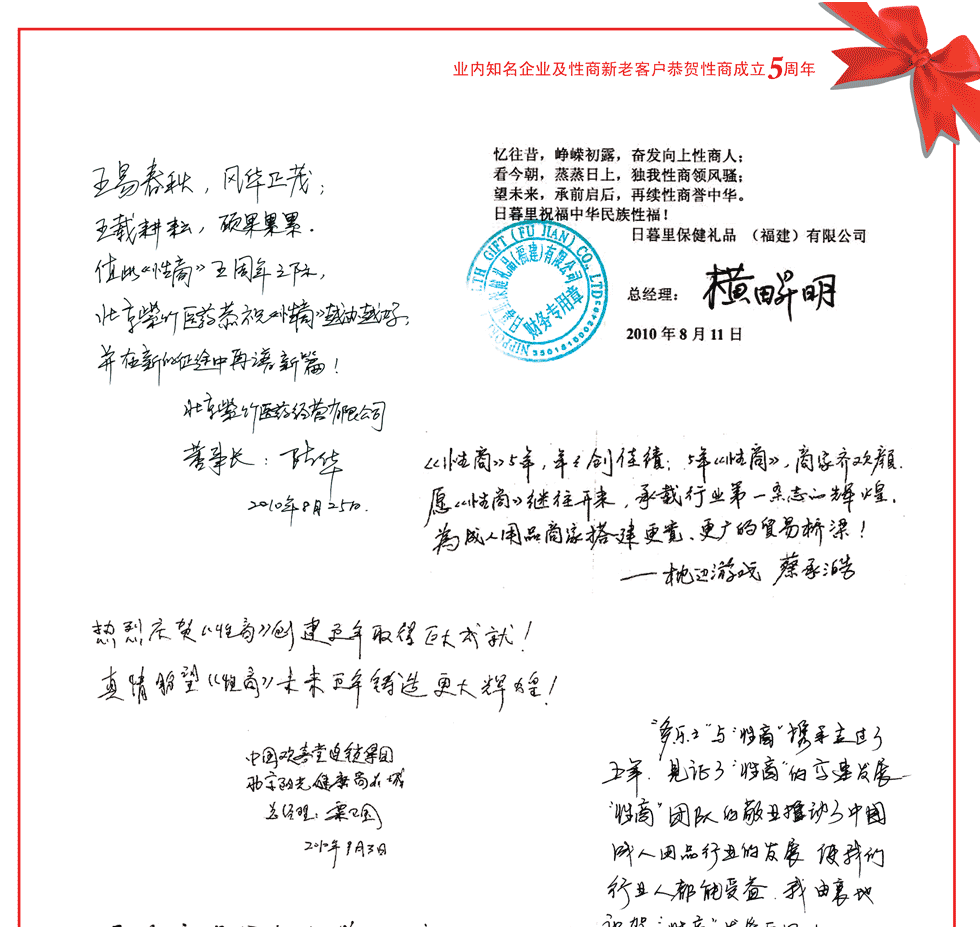 业内知名企业及性商新老客户恭贺性商成立5周年
五易春秋，风华正茂；
五载耕耘，硕果累累。
值此《性商》五周年之际，
北京紫竹医药恭祝《性商》越油越好，
并在新的征途中再谱新篇！
北京紫竹医药经营有限公司
董事长：陆华
2010年8月25日.
忆往昔，峥嵘初露，奋发向上性商人；
看今朝，蒸蒸日上，独我性商领风骚；
望未来，承前启后，再续性商誉中华。
日暮里祝福中华民族性福！
日暮里保健礼品 （福建）有限公司
总经理：横田昇明
2010 年 8 月 11 日
GIFT (FU JIAN) CO., LTD
礼品(福建)有限公司
财务专用章
《性商》5年，年年创佳绩；5年《性商》，商家齐欢颜.
愿《性商》继往开来，承载行业第一杂志的辉煌，
为成人用品商家搭建更宽、更广的贸易桥梁！
——枕边游戏 蔡承浩
热烈庆贺《性商》创建五年取得巨大成就！
真情盼望《性商》未来五年铸造更大辉煌！
中国欢喜堂连锁集团
北京阳光健康商城
总经理：
2010年9月3日
"多乐士"与"性商"携手走过了
五年，见证了"性商"的高速发展
"性商"团队的敬业推动了中国
成人用品行业的发展 使我们
行业人都能受益，我由衷地
祝贺"性商"